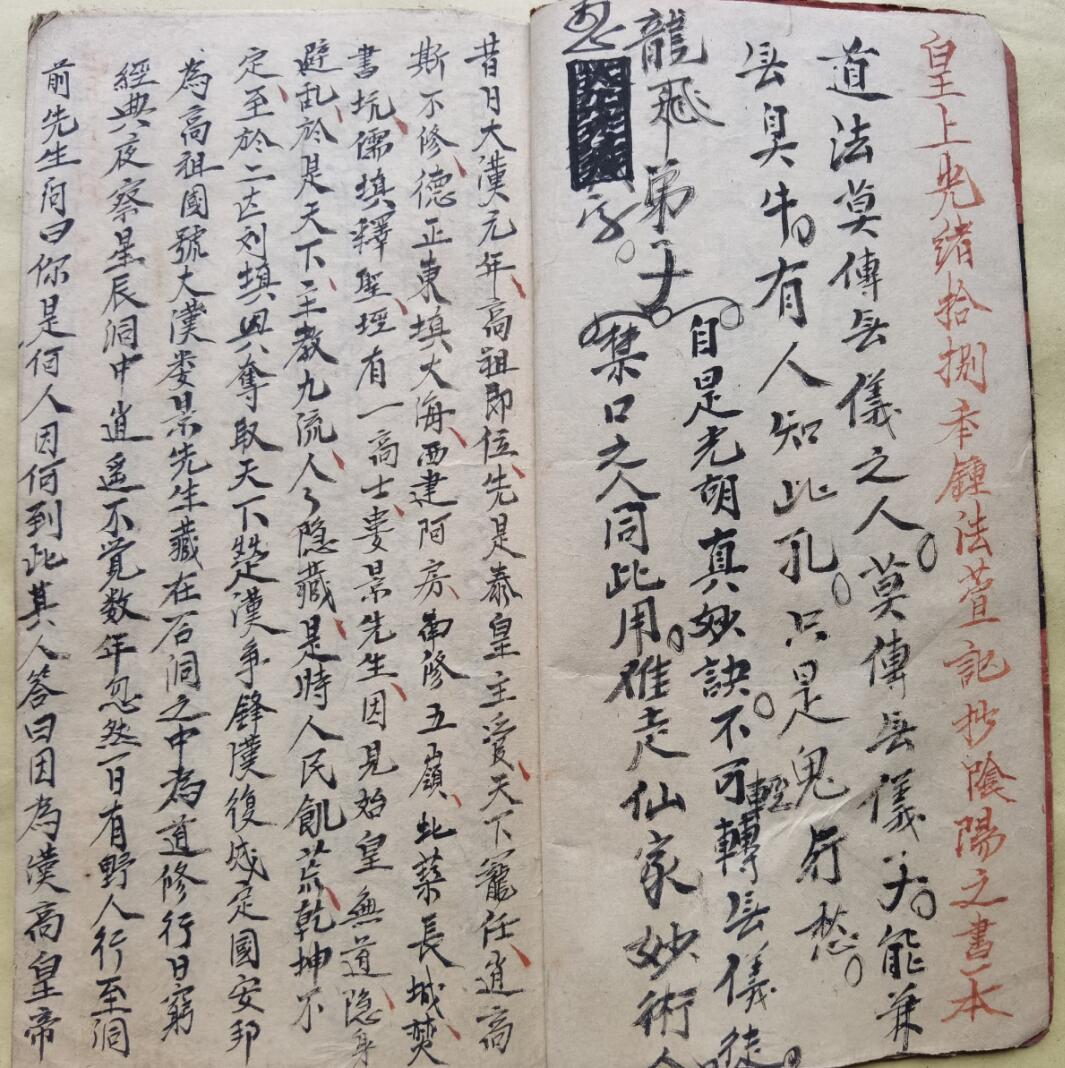 皇上光緒拾捌年鍾法萱記抄陰陽之書一本
道法莫傳無儀之人莫傳無儀夫能兼
無臭牛有人知此孔只是鬼愁
龍飛弟子自是光朗真妙訣不可輕轉無儀徒
字禁口之人同此用难走仙家妙術
昔日大漢元年高祖即位先是秦皇主受天下寵任逍高
斯不修德正東填大海西建阿房南修五嶺北築長城焚
書坑儒填釋聖経有一高士婁景先生因見始皇無道隐身
避乱於是天下三教九流人々隐藏是時人民飢荒乾坤不
定至於二世刘填興奪取天下楚漢争鋒漢復成定國安邦
為高祖國號大漢娄景先生藏在石洞之中為道修行日窮
經典夜察星辰洞中逍遥不覚数年忽然一日有野人行至洞
前先生问曰你是何人因何到此其人答曰因為漢高皇帝